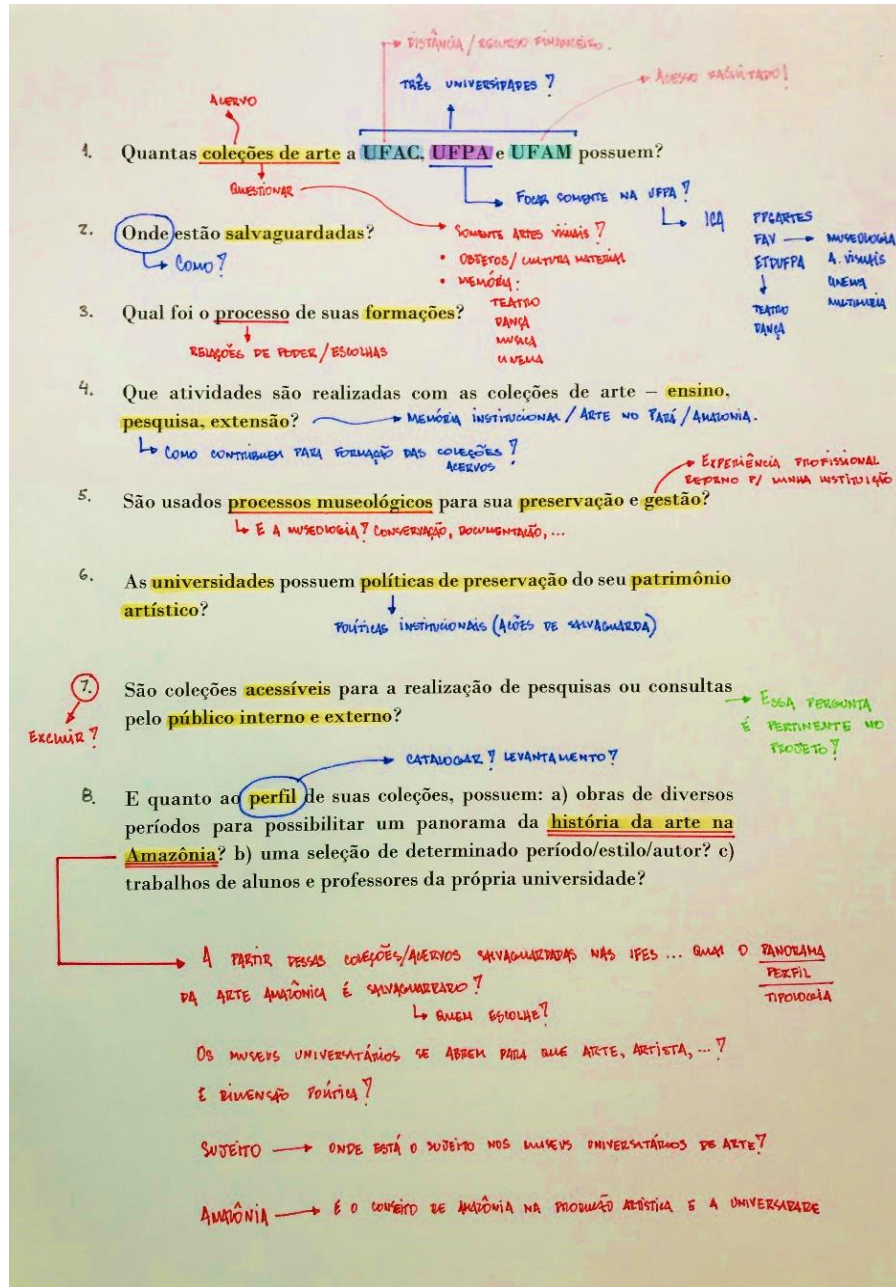 DISTÂNCIA / RECURSO FINANCEIRO.
TRÊS UNIVERSIDADES?
ACESSO FACILITADO!
ACERVO
1. Quantas coleções de arte a UFAC, UFPA e UFAM possuem?
QUESTIONAR
FOCAR SOMENTE NA UFPA?
ICA
PPGARTES
FAV
MUSEOLOGIA
A. VISUAIS
CINEMA
MULTIMIDIA
ETDUFPA
TEATRO
DANÇA
2. Onde estão salvaguardadas?
COMO?
SOMENTE ARTES VISUAIS?
• OBJETOS / CULTURA MATERIAL
• MEMÓRIA:
TEATRO
DANÇA
MUSICA
CINEMA
3. Qual foi o processo de suas formações?
RELAÇÕES DE PODER / ESCOLHAS
4. Que atividades são realizadas com as coleções de arte – ensino,
pesquisa, extensão?
MEMÓRIA INSTITUCIONAL / ARTE NO PARÁ / AMAZONIA.
COMO CONTRIBUEM PARA FORMAÇÃO DAS COLEÇÕES?
ACERVOS
EXPERIÊNCIA PROFISSIONAL
RETORNO P/ MINHA INSTITUIÇÃO
5. São usados processos museológicos para sua preservação e gestão?
E A MUSEOLOGIA? CONSERVAÇÃO, DOCUMENTAÇÃO, ...
6. As universidades possuem políticas de preservação do seu patrimônio
artístico?
POLÍTICAS INSTITUCIONAIS (AÇÕES DE SALVAGUARDA)
7. São coleções acessíveis para a realização de pesquisas ou consultas
pelo público interno e externo?
EXCLUIR?
ESSA PERGUNTA
É PERTINENTE NO
PROJETO?
CATALOGAR? LEVANTAMENTO?
8. E quanto ao perfil de suas coleções, possuem: a) obras de diversos
períodos para possibilitar um panorama da história da arte na
Amazônia? b) uma seleção de determinado período/estilo/autor? c)
trabalhos de alunos e professores da própria universidade?
A PARTIR DESSAS COLEÇÕES/ACERVOS SALVAGUARDADAS NAS IFES ... QUAL O PANORAMA
PERFIL
TIPOLOGIA
DA ARTE AMAZÔNICA É SALVAGUARDADO?
QUEM ESCOLHE?
OS MUSEUS UNIVERSITÁRIOS SE ABREM PARA QUE ARTE, ARTISTA, ...?
E DIMENSÃO POLÍTICA?
SUJEITO → ONDE ESTÁ O SUJEITO NOS MUSEUS UNIVERSITÁRIOS DE ARTE?
AMAZÔNIA → E O CONSEITO DE AMAZÔNIA NA PRODUÇÃO ARTÍSTICA E A UNIVERSIDADE